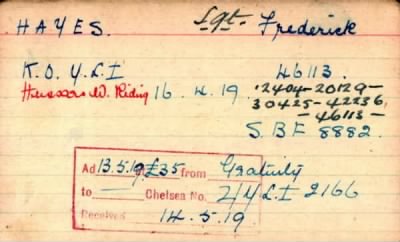 HAYES. Sgt. Frederick
K.O.Y.L.I 46113.
Hussars W. Riding 16.4.19 12404-20129-
30425-42236
-46113-
S.B.F 8882.
Ad 13.5.19 £35 from Gratuity
to Chelsea No. 2/Y.L.I 2166
Received 14.5.19